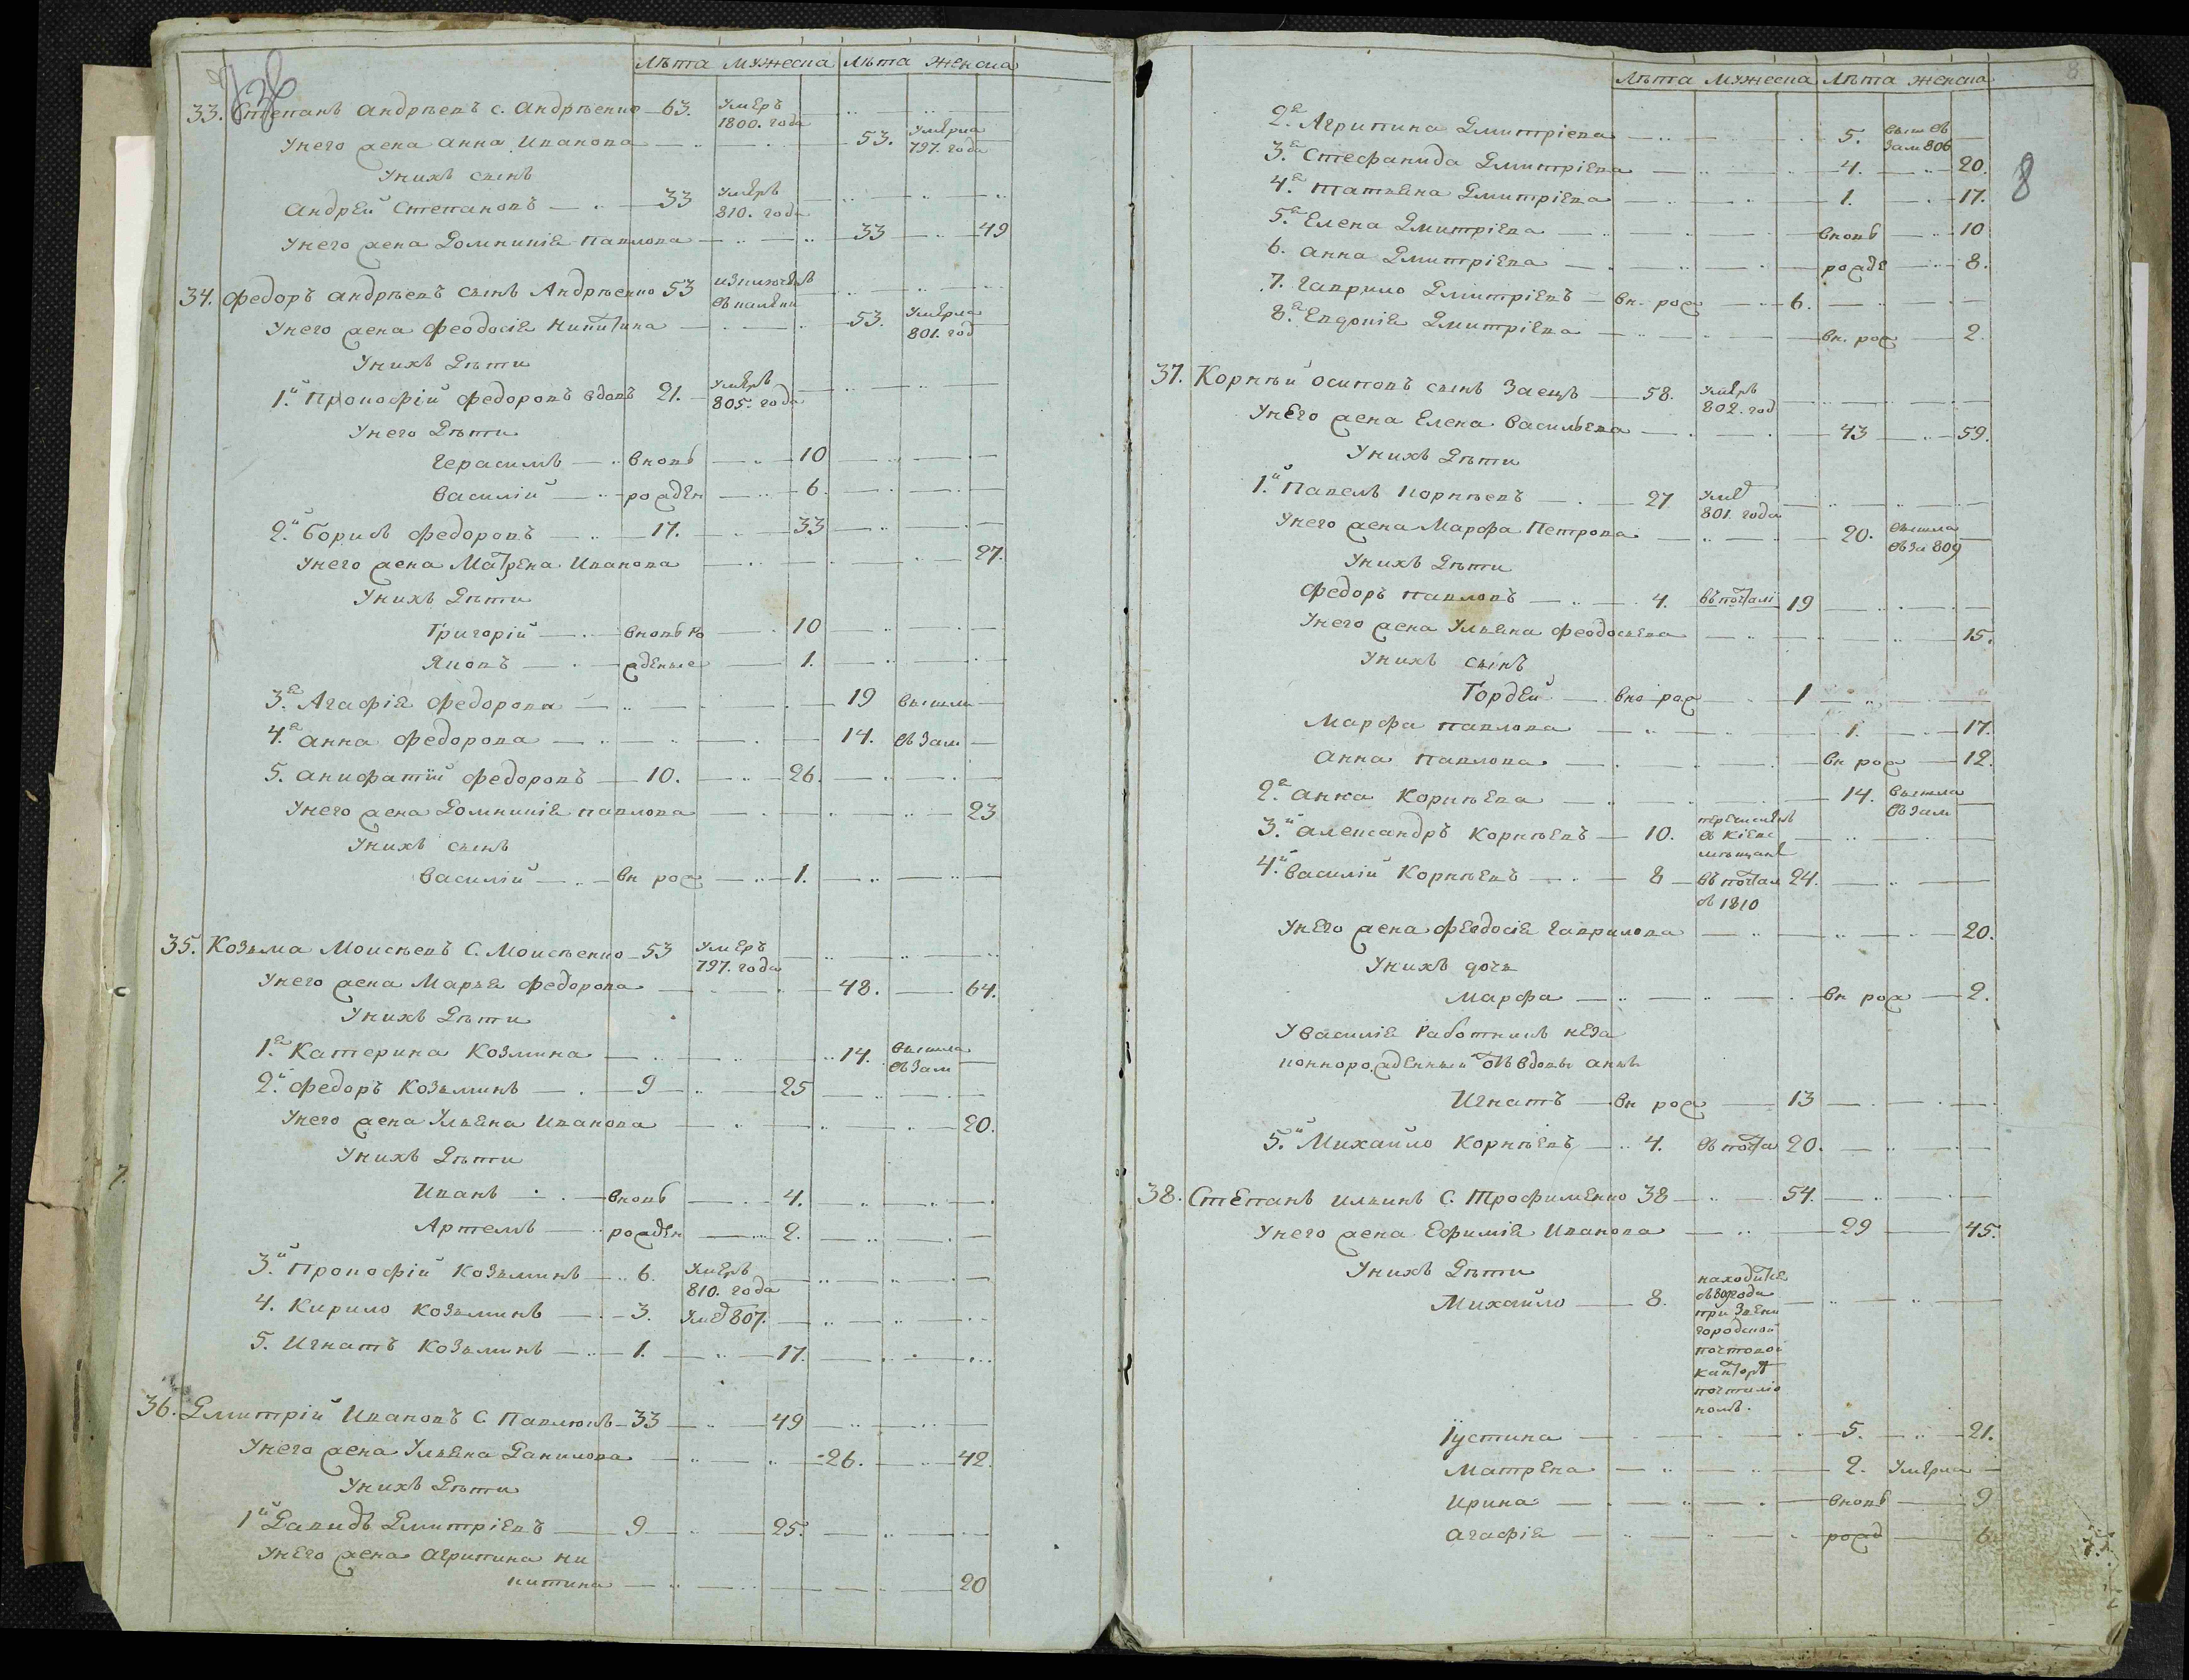 Лѣта мужеска Лѣта женска
33. Степанъ Андрѣевъ с. Андрѣенко 63. умеръ 1800. года
У него жена Анна Иванова 53. умерла 797. года
У нихъ сынъ
Андрей Степановъ 33 умеръ 810. года
У него жена Домникія Павлова 33 49
34. Федоръ Андрѣевъ сынъ Андрѣенко 53
У него жена Феодосія Никитина 53. умерла 801. год
У нихъ дѣти
1.й Прокофій Федоровъ вдовъ 21. умеръ 805. года
У него дѣти
Герасимъ вновь 10
Василій рожден 6.
2.й Борисъ Федоровъ 17. 33
У него жена Матрена Иванова 27.
У нихъ дѣти
Григорій вновь ро 10
Яковъ жденые 1.
3.я Агафія Федорова 19 вышли
4.я Анна Федорова 14. въ зам
5. Анифатій Федоровъ 10. 26.
У него жена Домникія Павлова 23
У нихъ сынъ
Василій вн рож 1.
35. Козьма Моисѣевъ С. Моисѣенко 53 умеръ 797. года
У него жена Марья Федорова 48. 64.
У нихъ дѣти
1.я Катерина Козмина 14. вышла въ зам
2.й Федоръ Козьминъ 9 25
У него жена Ульяна Иванова 20.
У нихъ дѣти
Иванъ вновь 4.
Артемъ рожден 2.
3.й Прокофій Козьминъ 6. умеръ 810. года
4. Кирило Козьминъ 3. умер 807.
5. Игнатъ Козьминъ 1. 17.
36. Дмитрій Ивановъ С. Павлюкъ 33 49
У него жена Ульяна Данилова 26. 42.
У нихъ дѣти
1й Давидъ Дмитріевъ 9 25.
У него жена Агрипина Ни
китина 20
8
Лѣта мужеска Лѣта женска
8
2.я Агрипина Дмитріева 5. вышла зам 806
3.я Стефанида Дмитріева 4. 20.
4.я Татьяна Дмитріева 1. 17.
5.я Елена Дмитріева вновь 10
6. Анна Дмитріева рожде 8.
7. Гаврило Дмитріевъ вн. рож 6.
8.я Евдокія Дмитріева вн. рож 2.
37. Корнѣй Осиповъ сынъ Заецъ 58. умеръ 802. год
У него жена Елена Васильева 43 59.
У нихъ дѣти
1.й Павелъ Корнѣевъ 27 умер 801. года
У него жена Марфа Петрова 20. вышла въ за 809
У нихъ дѣти
Федоръ Павловъ 4. въ почтал 19
У него жена Ульяна Феодосьева 15.
У нихъ сынъ
Гордей вно рож 1
Марфа Павлова 1. 17.
Анна Павлова вн рож 12.
2.я Анна Корнѣева 14. вышла въ зам
3.й Александръ Корнѣевъ 10. перечислен въ кіевс мѣщане
4й Василій Корнѣевъ 8 въ почтал 24.
въ 1810
У него жена Феодосія Гаврилова 20.
У нихъ дочь
Марфа вн рож 2.
У Василія работникъ неза
коннорожденный отъ вдовы Анны
Игнатъ вн рож 13
5.й Михайло Корнѣевъ 4. въ почта 20.
38. Степанъ Ильинъ С. Трофименко 38 54.
У него жена Ефимія Иванова 29 45.
У нихъ дѣти
Михайло 8. находится
въ 809 года
при Звени
городской
почтовой
канторѣ
почталіо
номъ.
Іустина 5. 21.
Матрена 2. умерла
Ирина вновь 9
Агафія рожд 6